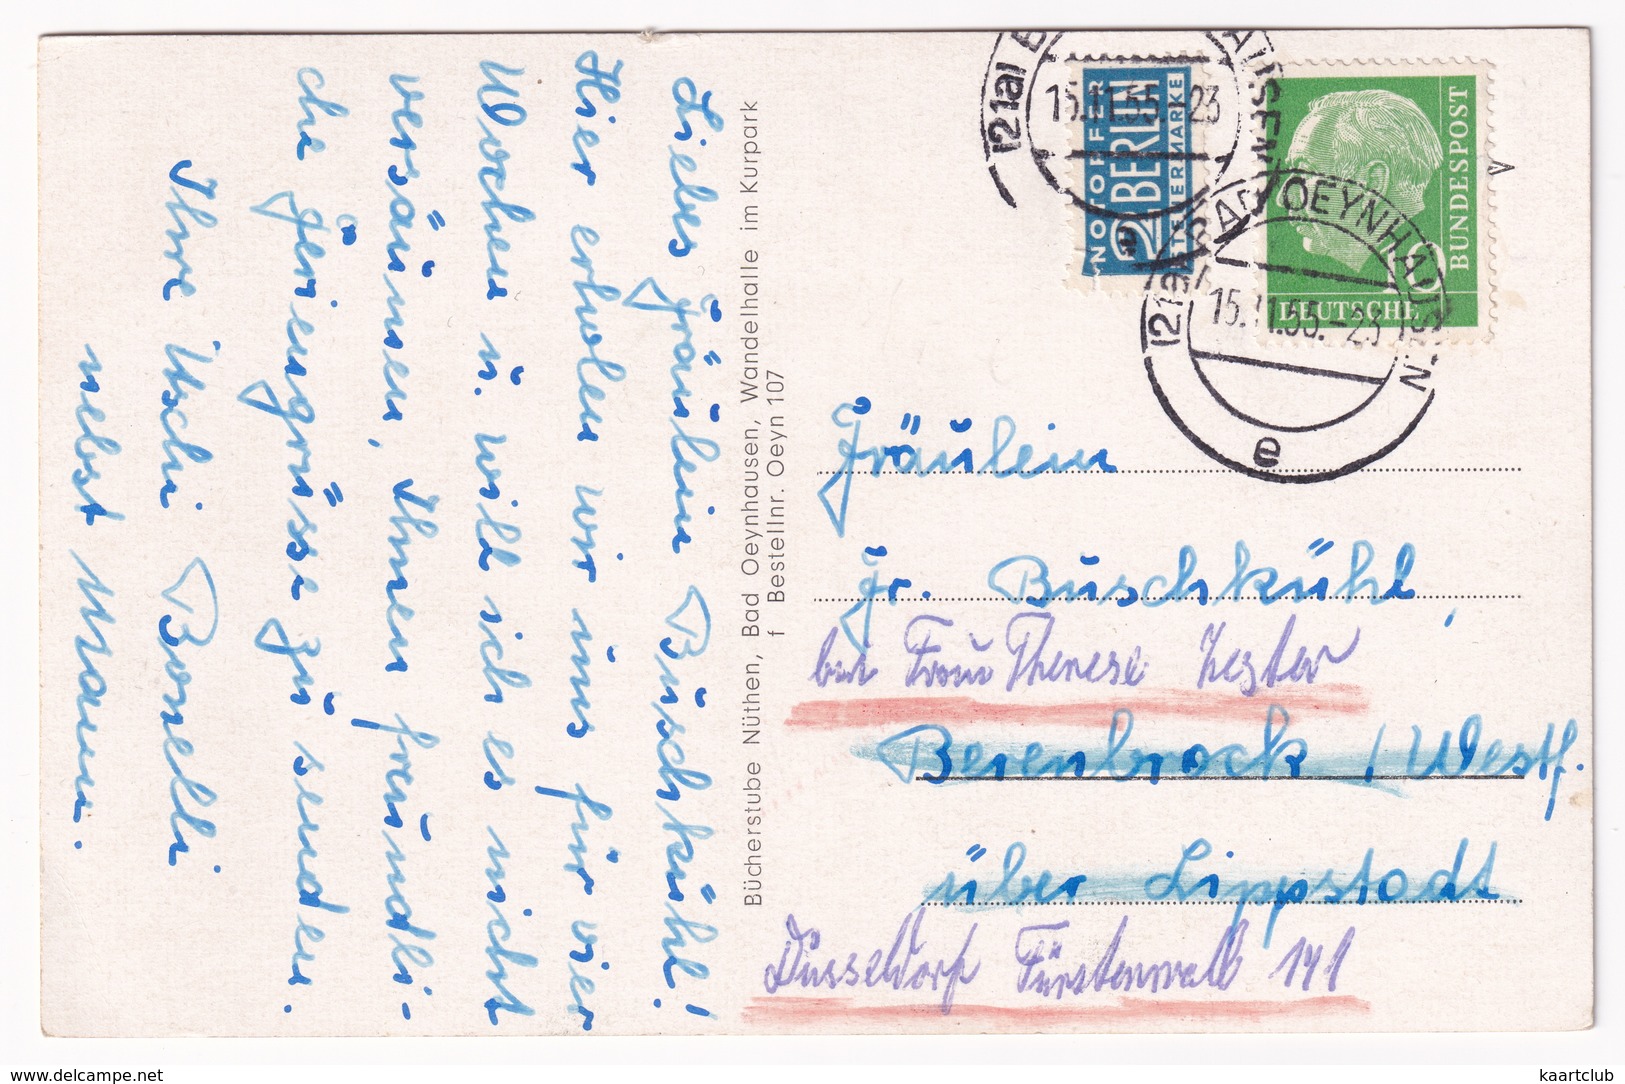 Liebes Fräulein Buschkühl!
Hier erholen wir uns für vier
Wochen u. will ich es nicht
versäumen, Ihnen freundli-
che Feriengrüsse zu senden.
Ihre Uschi Bonelli
nebst Mann.
Bücherstube Nüthen, Bad Oeynhausen, Wandelhalle im Kurpark
f Bestellnr. Oeyn 107
NOTOPFER
2 BERLIN
STEUERMARKE
DEUTSCHE
BUNDESPOST
10
15.11.55.-23
(21a) BAD OEYNHAUSEN
15.11.55.-23
e
Fräulein
Fr. Buschkühl,
bei Frau Therese
Berenbrock / Westf.
über Lippstadt
Düsseldorf Fürstenwall 141
www.delcampe.net
kaartclub